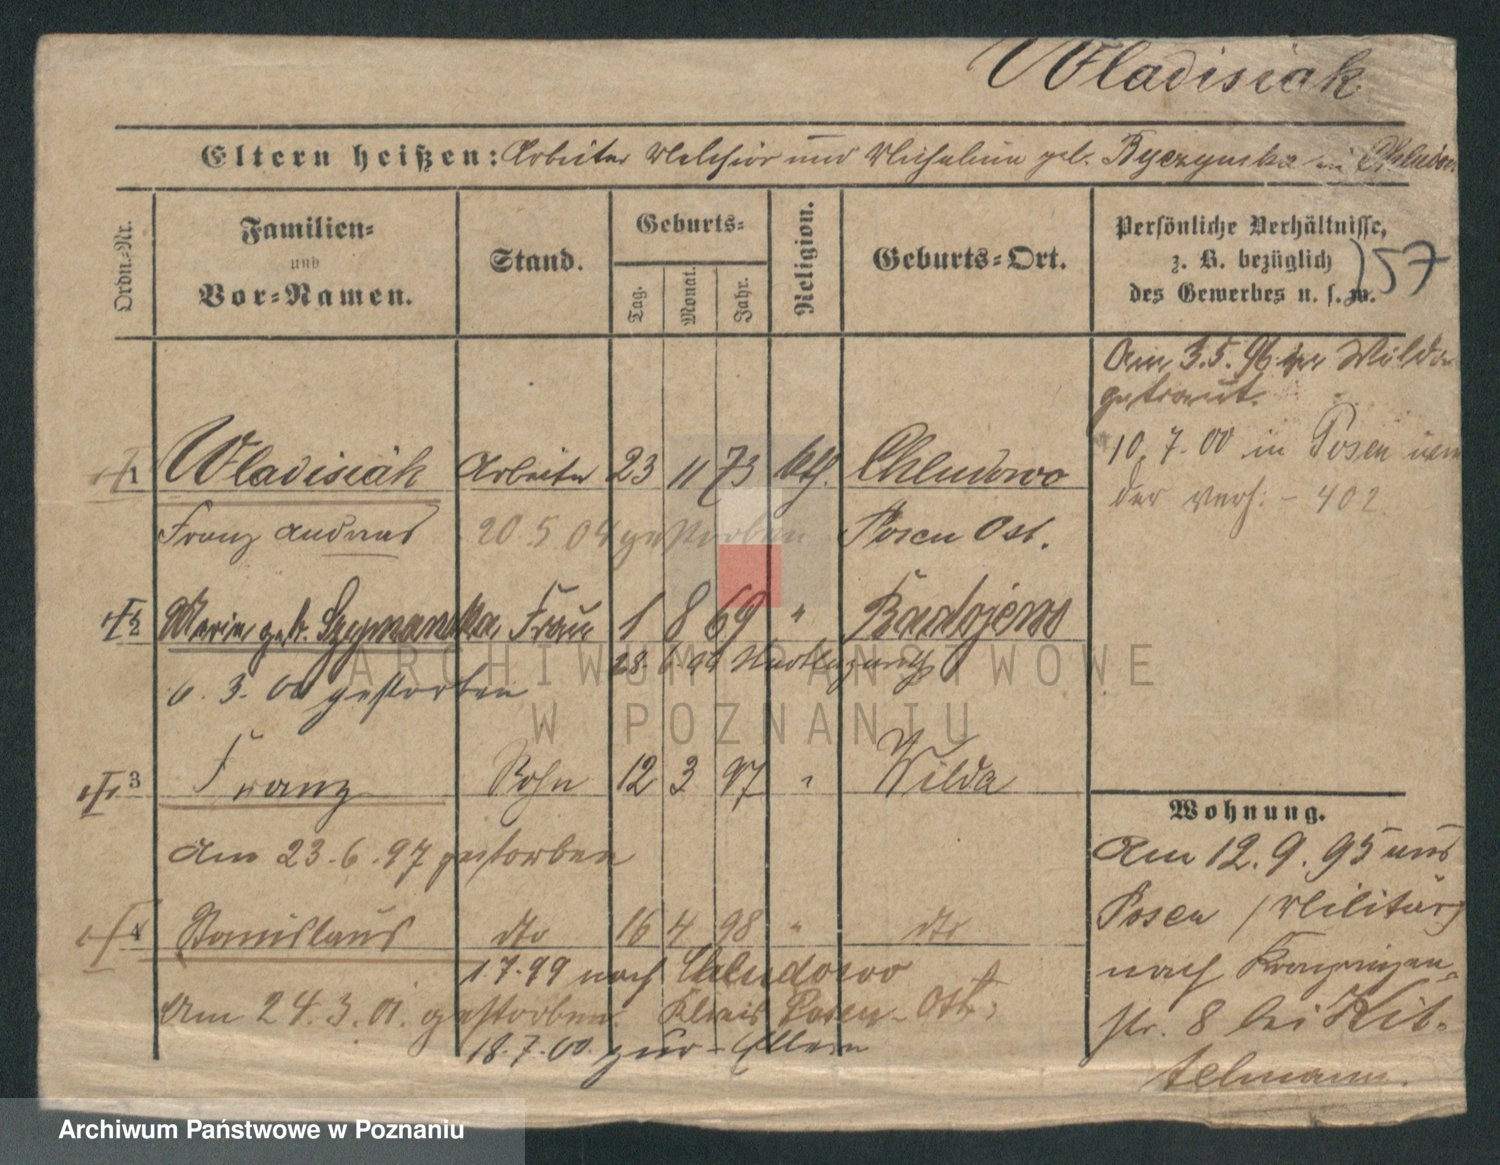 Wladisiak
Eltern heißen: Arbeiter Melchior und Michalina geb. Byczynska in Chludowo
Ordn.-Nr.
Familien-
und
Vor-Namen.
Stand.
Geburts-
Tag.
Monat.
Jahr.
Religion.
Geburts-Ort.
Persönliche Verhältnisse,
z. B. bezüglich
des Gewerbes u. s. w.
157
Am 3.5.96 in Wilda
getraut.
10.7.00 in Posen
der verh: - 402
1 Wladisiak Arbeiter 23 11 73 kth. Chludowo
Franz Andreas 20.5.04 gestorben Posen Ost.
2 Marie geb. Szymanska Frau 1 8 69 " Radojewo
6.3.00 gestorben
3 Franz Sohn 12 3 97 " Wilda
Am 23.6.97 gestorben
4 Stanislaus dto 16 4 98 " dto
1.7.99 nach Chludowo
Am 24.3.01. gestorben. Kreis Posen-Ost.
18.7.00. zur
Wohnung.
Am 12.9.95 aus
Posen / Militär)
nach Kronprinzen-
str. 8 bei Kit-
telmann.
ARCHIWUM PAŃSTWOWE
W POZNANIU
Archiwum Państwowe w Poznaniu